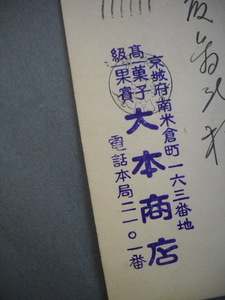 京城府南米倉町一六三番地
高級
菓子果實
大本商店
電話本局二一〇一番